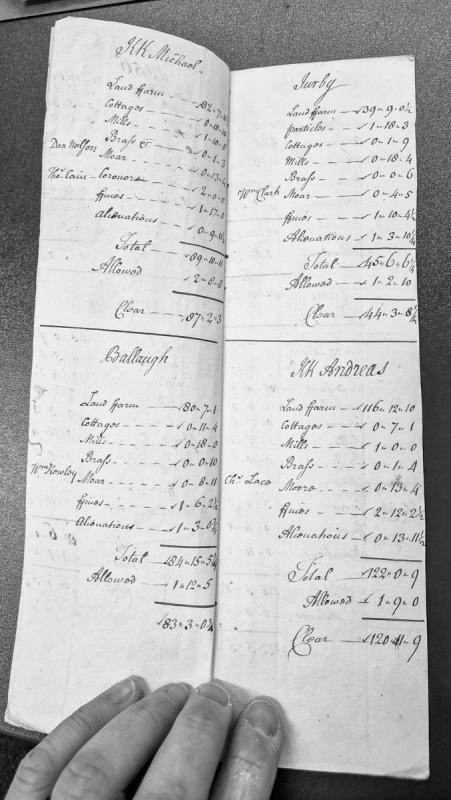 KK Michael
Land ffarm — 82 " 7 "
Cottages - - - 0 " 10 "
Mills - - - 1 " 10 " 0
Brass &c - - 0 " 1 " 3
Dan Nelson Moar - - - 0 " 13 " 4
Tho: Cain - Coroner - - 2 " 0 " 0
ffines - - - 1 " 17 " 0
Alienations - - 0 " 9 "
Total - - 89 " 10 " 11
Allowed - - 2 " 8 " 8
Clear - - 87 " 2 " 3
Ballaugh
Land ffarm — 80 " 7 " 1
Cottages - - - 0 " 11 " 4
Mills - - - 0 " 18 " 0
Brass - - - 0 " 0 " 10
Wm Kewley Moar - - - 0 " 8 " 11
ffines - - - 1 " 6 " 2½
Alienations - - 1 " 3 " 0¾
Total 84 " 15 " 5¼
Allowed — 1 " 12 " 5
83 " 3 " 0¼
Jurby
Land ffarm — 39 " 9 " 0½
particles - - 1 " 18 " 3
Cottages - - 0 " 1 " 9
Mills - - - 0 " 18 " 4
Brass - - - 0 " 0 " 6
Wm Clark Moar - - - 0 " 4 " 5
ffines - - - 1 " 10 " 4½
Alienations - 1 " 3 " 10½
Total - 45 " 6 " 6½
Allowed - - 1 " 2 " 10
Clear — 44 " 3 " 8½
KK Andreas
Land ffarm — 116 " 12 " 10
Cottages - - 0 " 7 " 1
Mills - - - 1 " 0 " 0
Brass - - - 0 " 1 " 4
Chr. Lace Moore - - - 0 " 13 " 4
ffines - - - 2 " 12 " 2½
Alienations - 0 " 13 " 11½
Total — 122 " 0 " 9
Allowed - 1 " 9 " 0
Clear — 120 " 11 " 9